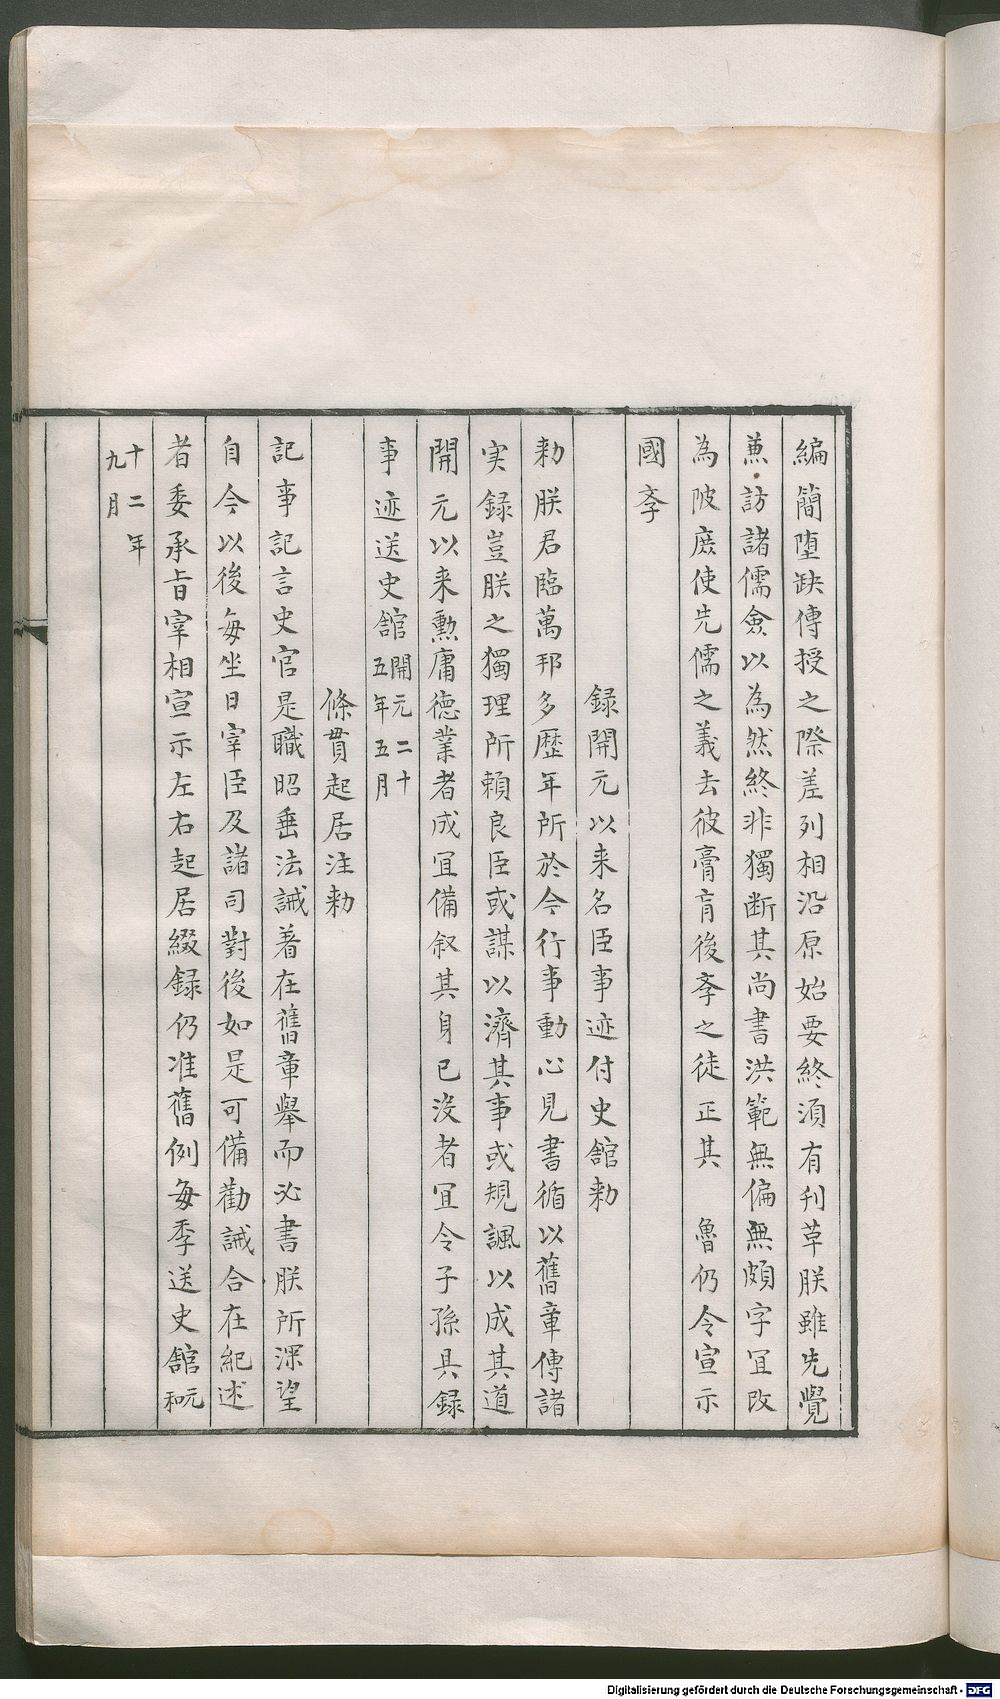 編簡堕缺傳授之際差列相沿原始要終湏有刊草朕雖先覺
兼訪諸儒僉以為然終非獨断其尚書洪範無偏無頗字冝改
為陂庶使先儒之義去彼膏肓後斈之徒正其　魯仍令宣示
國斈
録開元以来名臣事迹付史舘勑
勑朕君臨萬邦多歴年所於今行事動心見書循以舊章傳諸
实録豈朕之獨理所頼良臣或謀以濟其事或規諷以成其道
開元以来勳庸徳業者成冝備叙其身已没者冝令子孫具録
事迹送史舘開元二十五年五月
條貫起居注勑
記事記言史官是職昭垂法誡著在舊章舉而必書朕所深望
自今以後每坐日宰臣及諸司對後如是可備勸誡合在紀述
者委承旨宰相宣示左右起居綴録仍准舊例每季送史舘元和
十二年九月
Digitalisierung gefördert durch die Deutsche Forschungsgemeinschaft - DFG